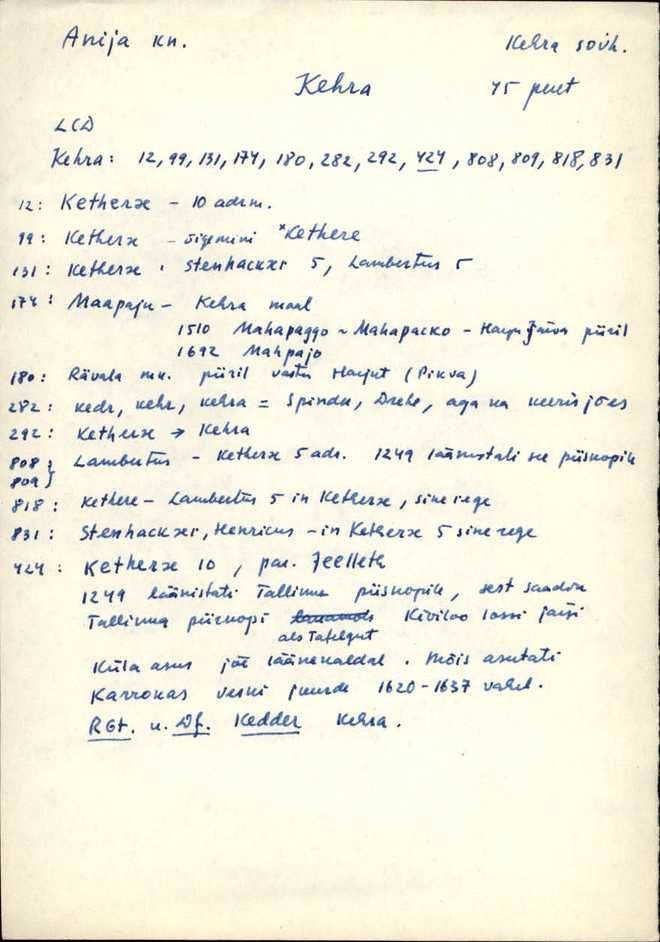 Anija kn. Kehra sovh.
Kehra 45 peret
LCD
Kehra: 12, 99, 131, 174, 180, 282, 292, 424, 808, 809, 818, 831
12: Ketheræ - 10 adrm.
99: Ketheræ - õigemini *Kethere
131: Ketheræ : Stenhackær 5, Lambertus 5
174: Maapaju - Kehra maal
1510 Mahapaggo ~ Mahapacko - Harju Järva piiril
1692 Mahpajo
180: Rävala mk. piiril vastu Harjut (Pikva)
282: kedr, kehr, kehra = Spindel, Drehe, aga ka keeris jões
292: Ketheræ → Kehra
808 } Lambertus - Ketheræ 5 adr. 1249 läänistati see piiskopile
809 }
818: Kethere - Lambertus 5 in Ketheræ, sine rege
831: Stenhackær, Henricus - in Ketheræ 5 sine rege
424: Ketheræ 10, par. Jeelleth
1249 läänistati Tallinna piiskopile, sest saadik
Tallinna piiskopi Kiviloo lossi järgi
als Tafelgut
Küla asus jõe läänekaldal. Mõis asutati
Karronas veski juurde 1620-1637 vahel.
RGt. u. Df. Kedder Kehra.